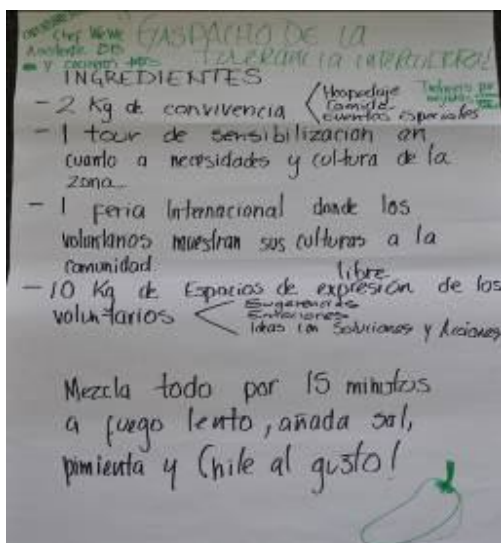 Chef
GASPACHO DE LA
y
TOLERANCIA INTERCULTURAL
INGREDIENTES
- 2 Kg de convivencia
Hospedaje
Comida
eventos especiales
- 1 tour de sensibilización en
cuanto a necesidades y cultura de la
zona
- 1 feria Internacional donde los
voluntarios muestran sus culturas a la
comunidad.
- 10 Kg de Espacios de expresión libre de los
voluntarios
Sugerencias
Emociones
Ideas con Soluciones y Acciones
Mezcla todo por 15 minutos
a fuego lento, añada sal,
pimienta y Chile al gusto!